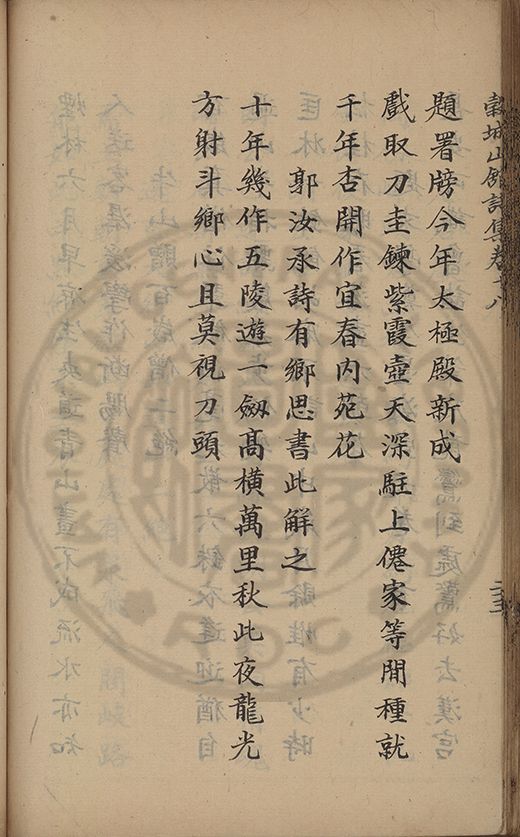 穀城山館詩集卷十八
題署牓今年太極殿新成
戲取刀圭鍊紫霞壺天深駐上僊家等閒種就
千年杏開作宜春内苑花
郭汝承詩有鄉思書此解之
十年幾作五陵遊一劔高橫萬里秋此夜龍光
方射斗鄉心且莫視刀頭